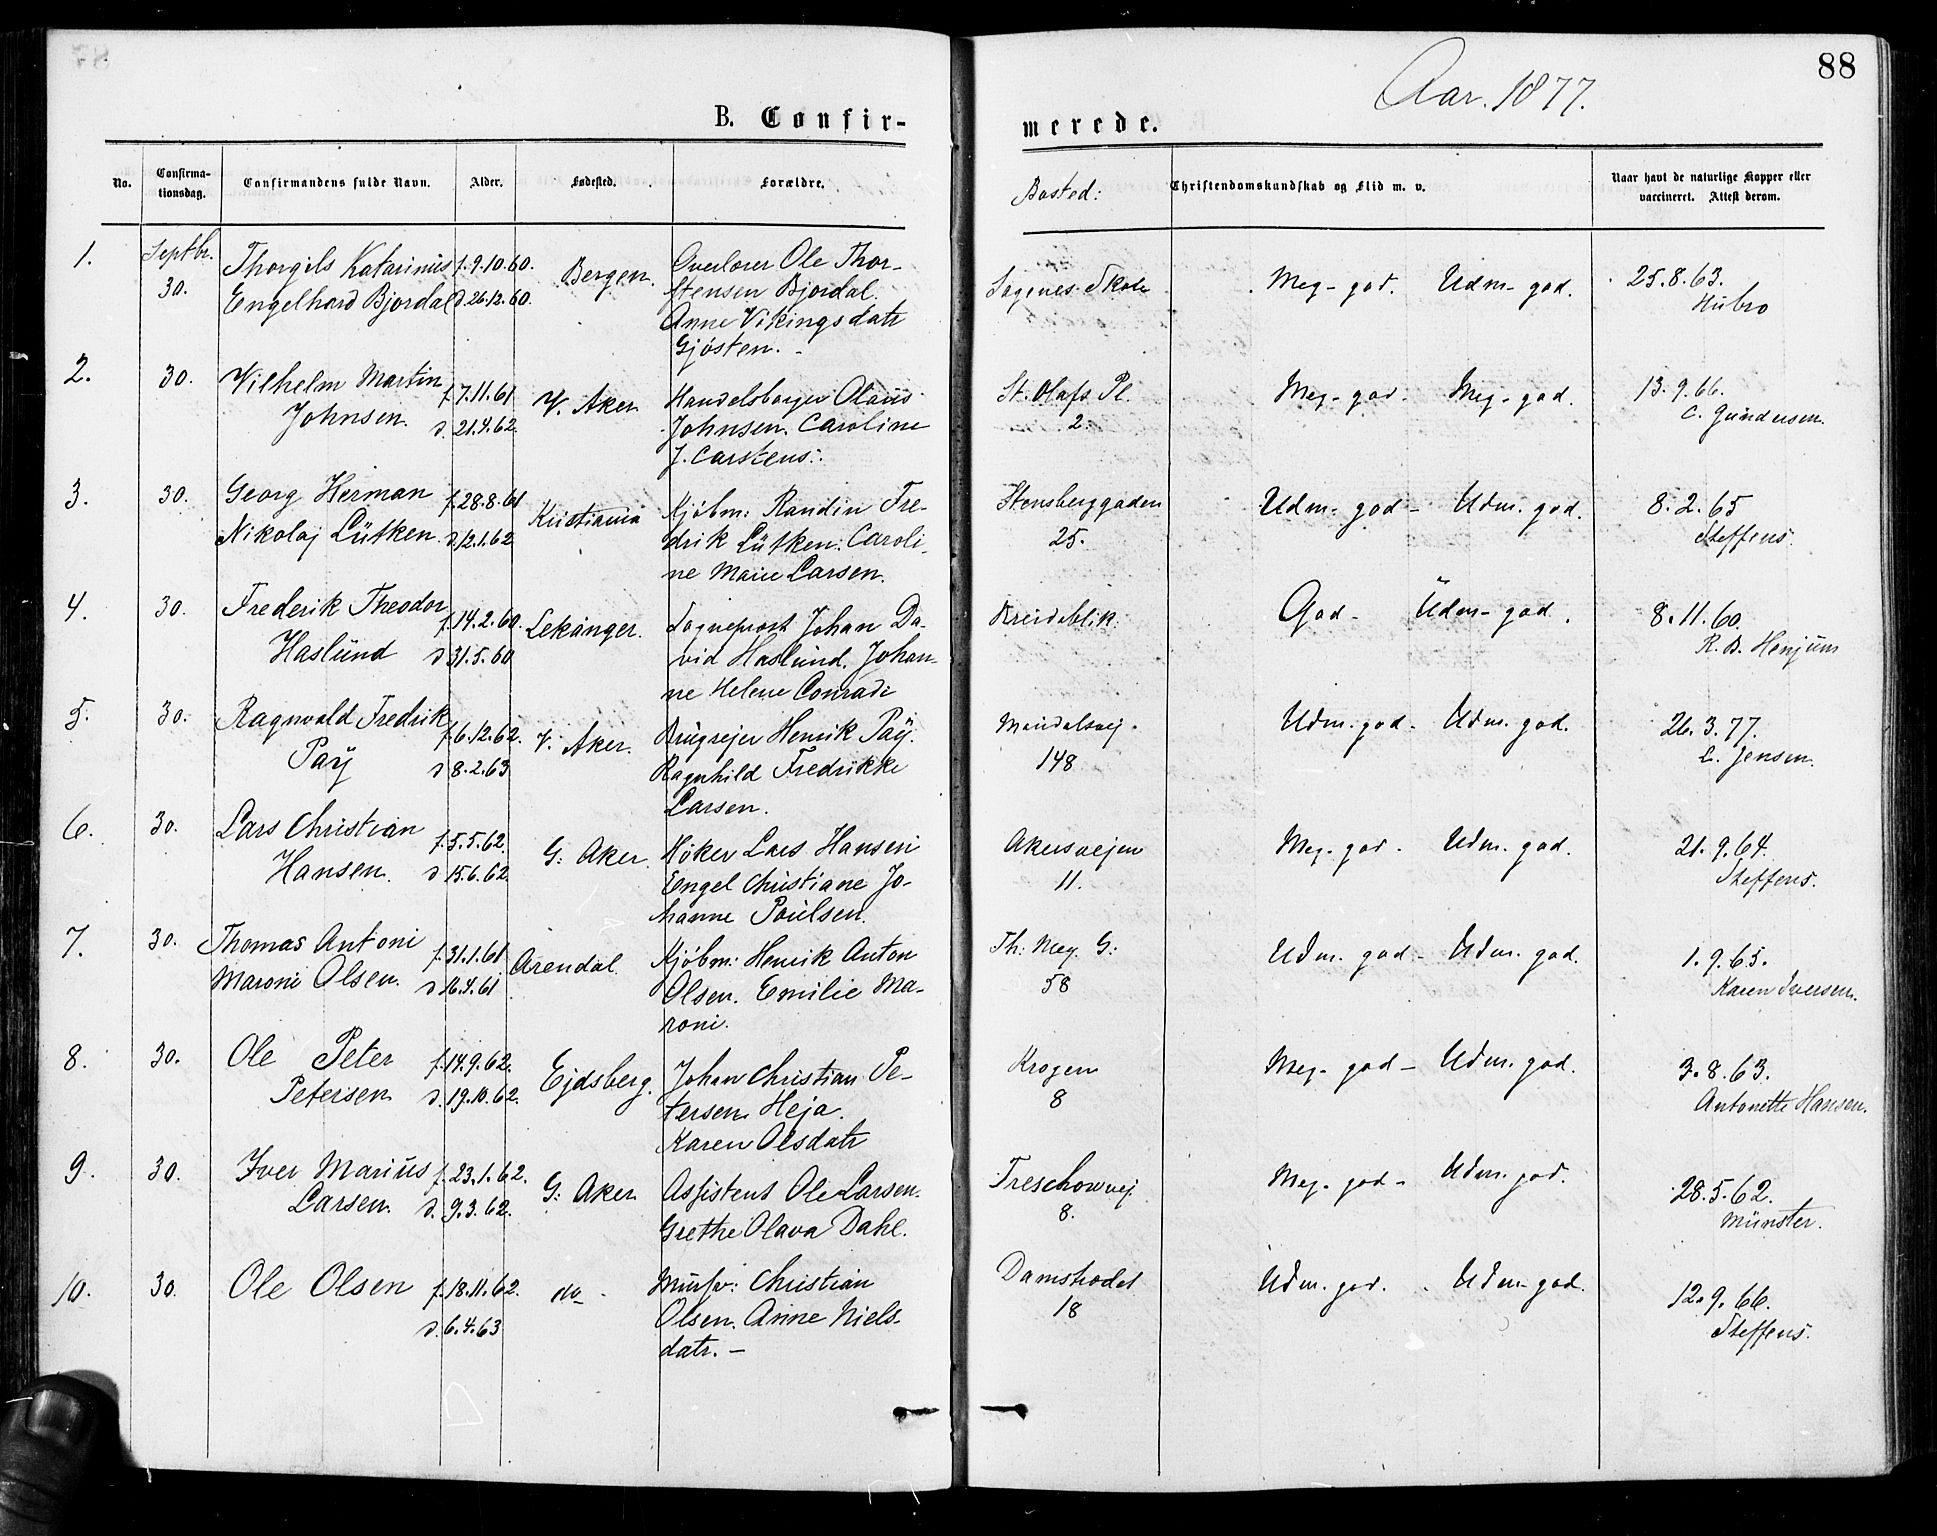 88
Aar. 1877.
B. Confir-
merede.
No.
Confirma-
tionsdag.
Confirmandens fulde Navn.
Alder.
Fødested.
Forældre.
Bosted:
Christendomskundskab og Flid m. v.
Naar havt de naturlige Kopper eller
vaccineret. Attest derom.
1. Septbr. Thorgils Katarinus f. 9.10.60. Bergen. Overlærer Ole Thor- Sagenes Skole Meg- god. Udm- god. 25.8.63.
30. Engelhard Bjordal d. 26.12.60. stensen Bjordal. Hübro
Anne Vikingsdatr
Gjösten. -
2. 30. Vilhelm Martin f. 7.11.61 V. Aker Handelsborger Olaüs St. Olafs Pl. Meg- god- Meg- god. 13.9.66.
Johnsen. d. 21.4.62. Johnsen. Caroline 2. C. Gündersen.
J. Carstens:.
3. 30. Georg Herman f. 28.8.61 Kristiania Kjöbm: Randin Fre- Stensberggaden Udm- god- Udm. god. 8.2.65
Nikolaj Lütken. d. 12.1.62 drik Lütken. Caroli- 25. Steffens.
ne Marie Larsen.
4. 30. Frederik Theodor f. 14.2.60. Lekanger. Sogneprost Johan Da- Breidablik. God- Udm- god. 8.11.60.
Haslünd d. 31.5.60 vid Haslünd. Johan- R. B. Henjum
ne Helene Conradi
5. 30. Ragnvald Fredrik f. 6.12.62. V. Aker. Brügsejer Henrik Paÿ. Maridalsvej. Udm. god- Udm. god. 26.3.77.
Paÿ d. 8.2.63 Ragnhild Fredrikke 148 L. Jensen.
Larsen.
6. 30. Lars Christian f. 5.5.62. G: Aker. Höker Lars Hansen Akersvejen Meg- god- Udm. god. 21.9.64.
Hansen. d. 15.6.62. Engel Christiane Jo- 11. Steffens.
hanne Poülsen.
7. 30. Thomas Antoni f. 31.1.61 Arendal. Kjöbm: Henrik Anton Th: Mey. G: Udm. god- Udm. god. 1.9.65.
Maroni Olsen. d. 16.4.61 Olsen. Emilie Ma- 58 Karen Iversen.
roni.
8. 30. Ole Peter f. 14.9.62. Ejdsberg. Johan Christian Pe- Krogen Meg- god- Udm. god. 3.8.63.
Petersen d. 19.10.62. tersen Heja. 8 Antonette Hansen.
Karen Olsdatr
9. 30. Iver Mariüs f. 23.1.62. G: Aker Assistent Ole Larsen. Treschowvej. Meg- god- Udm. god. 28.5.62.
Larsen. d. 9.3.62. Grethe Olava Dahl. 8. Münster.
10. 30. Ole Olsen f. 18.11.62. do- Mürsv: Christian Damstrædet Udm. god. Udm- god. 12.9.66.
d. 6.4.63 Olsen. Anne Niels- 18 Steffens.
datr. -